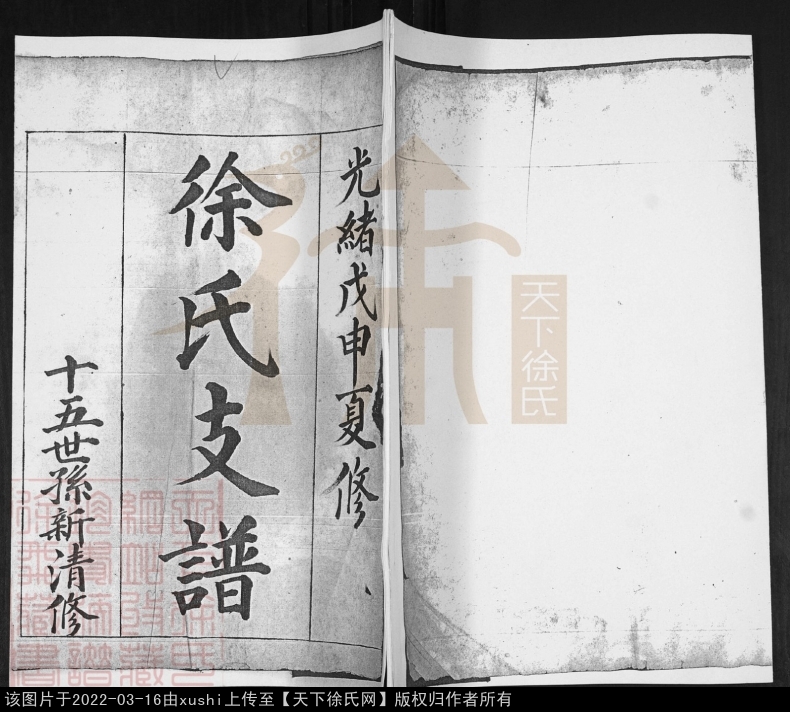 光緒戊申夏修
徐氏支譜
十五世孫新清修
天下徐氏
该图片于2022-03-16由xushi上传至【天下徐氏网】版权归作者所有